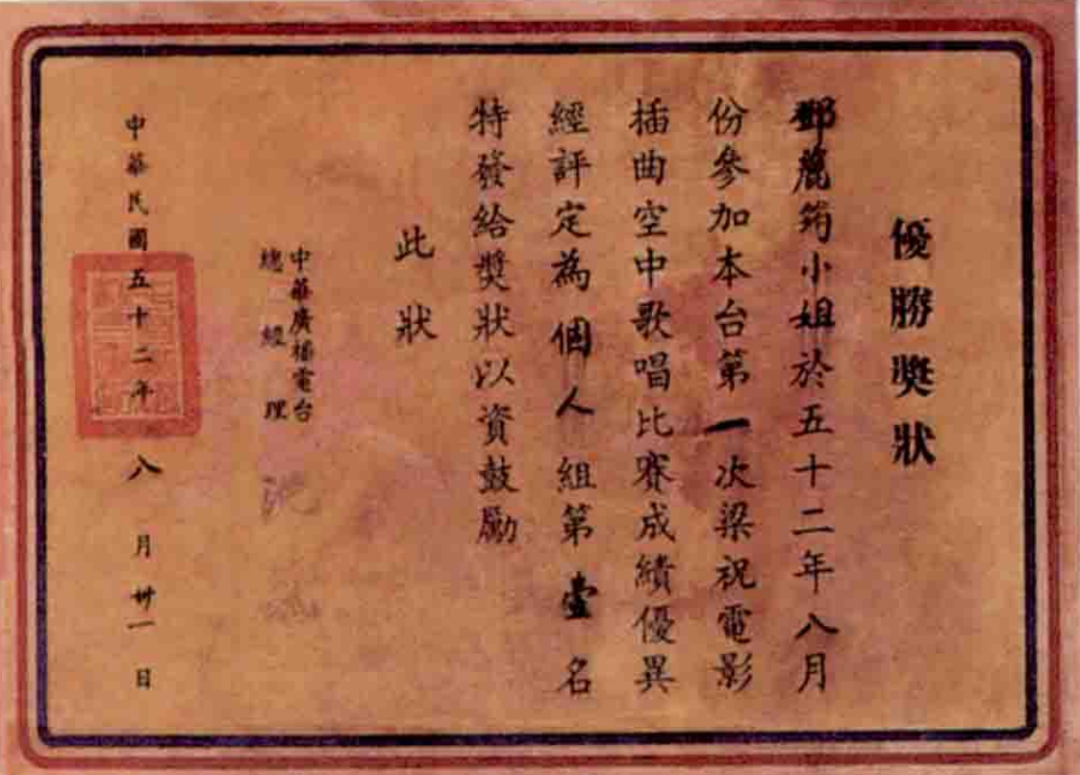 優勝獎狀
鄧麗筠小姐於五十二年八月
份參加本台第一次梁祝電影
插曲空中歌唱比賽成績優異
經評定為個人組第壹名
特發給獎狀以資鼓勵
此狀
中華廣播電台
總經理
中華民國五十二年八月卅一日